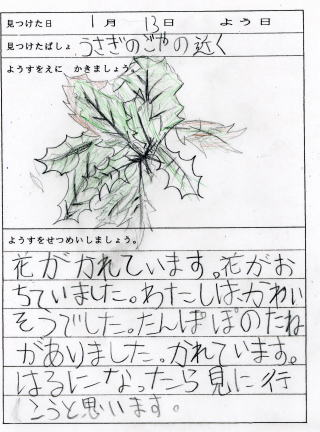 見つけた日 1月 13日 よう日
見つけたばしょ うさぎのごやの近く
ようすをえに かきましょう。
ようすをせつめいしましょう。
花がかれています。花がお
ちていました。わたしは、かわい
そうでした。たんぽぽのたね
がありました。かれています。
はるになったら見に行
こうと思います。